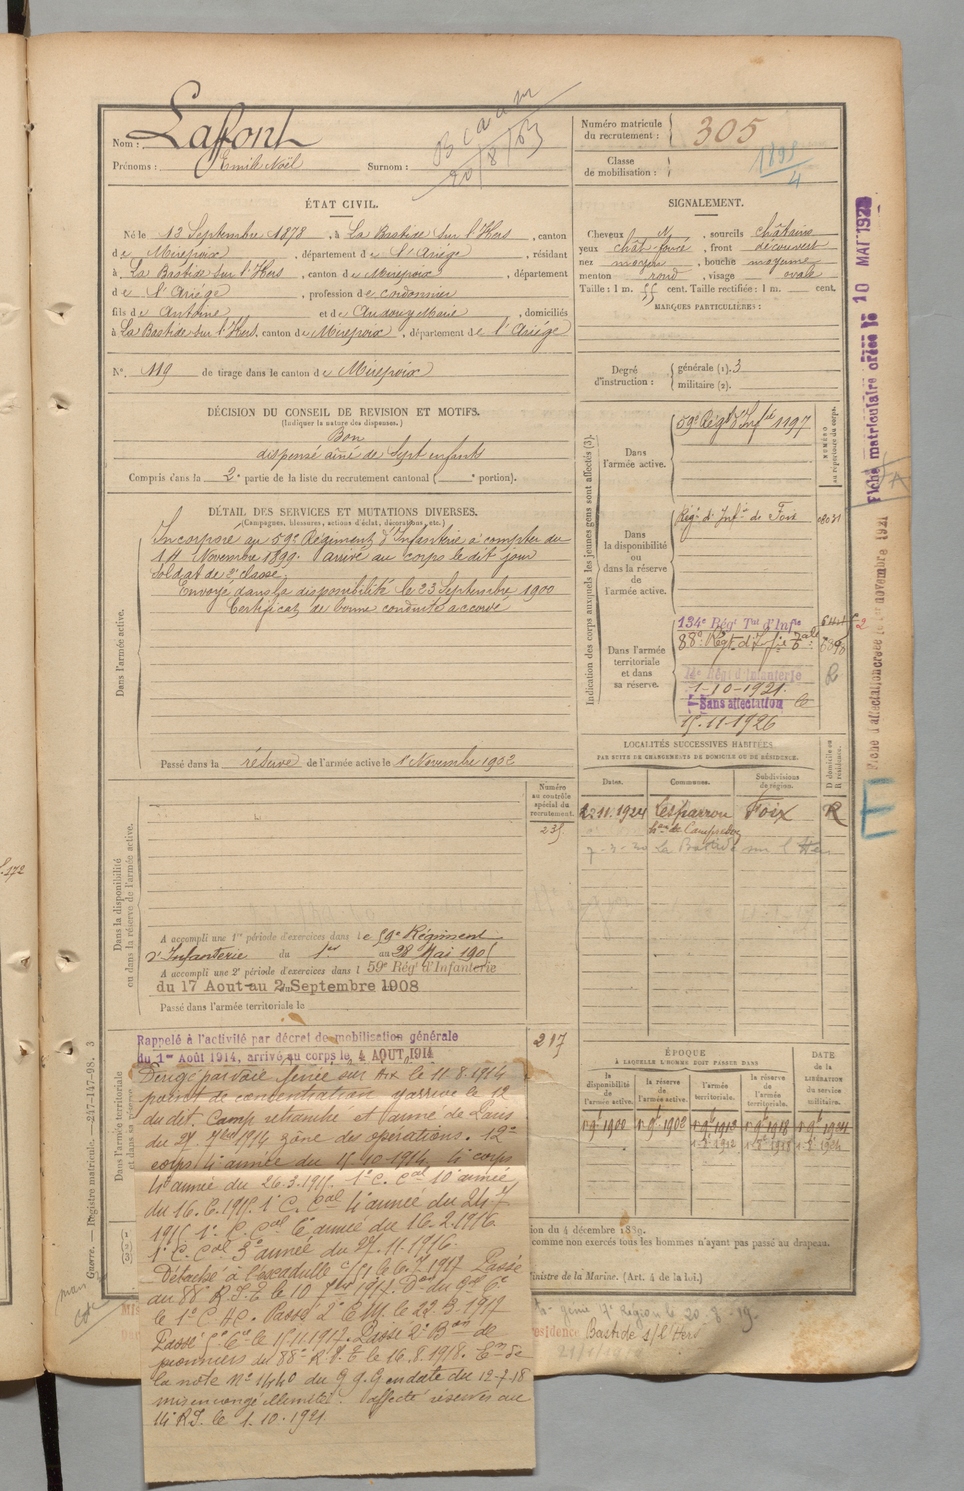 Nom : Lafont
Prénoms : Emile Noël Surnom :
20/8/63
Numéro matricule du recrutement : 305
Classe de mobilisation : 1898/4
ÉTAT CIVIL.
Né le 12 Septembre 1878, à La Bastide sur l'Hers, canton
de Mirepoix, département de l'Ariége, résidant
à La Bastide sur l'Hers, canton de Mirepoix, département
de l'Ariége, profession de cordonnier
fils de Antoine et de Audouy Marie, domiciliés
à La Bastide sur l'Hers, canton de Mirepoix, département de l'Ariége
N° 119 de tirage dans le canton de Mirepoix
SIGNALEMENT.
Cheveux N, sourcils châtains
yeux chât. foncé, front découvert
nez moyen, bouche moyenne
menton rond, visage ovale
Taille : 1 m. 55 cent. Taille rectifiée : 1 m. cent.
MARQUES PARTICULIÈRES :
Degré d'instruction : générale (1). 3
militaire (2).
DÉCISION DU CONSEIL DE REVISION ET MOTIFS.
(Indiquer la nature des dispenses.)
Bon
dispensé aîné de sept enfants
Compris dans la 2e partie de la liste du recrutement cantonal ( e portion).
DÉTAIL DES SERVICES ET MUTATIONS DIVERSES.
(Campagnes, blessures, actions d'éclat, décorations, etc.)
Dans l'armée active.
Incorporé au 59e Régiment d'Infanterie à compter du
14 Novembre 1899. Arrivé au corps le dit jour
soldat de 2e classe.
Envoyé dans la disponibilité le 23 Septembre 1900
Certificat de bonne conduite accordé
Passé dans la réserve de l'armée active le 1 Novembre 1902
Indication des corps auxquels les jeunes gens sont affectés (3).
NUMÉRO au répertoire du corps.
Dans l'armée active.
59e Régt d'Infie 1197
Dans la disponibilité ou dans la réserve de l'armée active.
Régt d'Infie de Foix
Dans l'armée territoriale et dans sa réserve.
134e Régt Tal d'Infie
88e Régt d'Infie
14e Régt d'Infanterie
1-10-1921.
Sans affectation le
15-11-1926
LOCALITÉS SUCCESSIVES HABITÉES
PAR SUITE DE CHANGEMENTS DE DOMICILE OU DE RÉSIDENCE.
Dates. Communes. Subdivisions de région. D domicile ou R résidence.
22.11.1924 Lesparrou Foix R
La Bastide sur l'Hers
Dans la disponibilité ou dans la réserve de l'armée active.
Numéro au contrôle spécial du recrutement.
235
A accompli une 1re période d'exercices dans le 59e Régiment
d'Infanterie du 1er au 28 Mai 1905
A accompli une 2e période d'exercices dans l 59e Régt d'Infanterie
du 17 Aout au 2 Septembre 1908
Passé dans l'armée territoriale le
ÉPOQUE
À LAQUELLE L'HOMME DOIT PASSER DANS
DATE DE LA LIBÉRATION du service militaire.
la disponibilité de l'armée active. la réserve de l'armée active. l'armée territoriale. la réserve de l'armée territoriale.
1 9bre 1900 1 9bre 1902 1 9bre 1912 1 9bre 1918 1 9bre 1924
Dans l'armée territoriale et dans sa réserve
217
Rappelé à l'activité par décret de mobilisation générale
du 1er Août 1914, arrivé au corps le 4 AOUT 1914
Dirigé par voie ferrée sur Aix le 11.8.1914
point de concentration y arrivé le 12
du dit. Camp retranché et armée de Paris
du 27 7bre 1914 zône des opérations. 12e
corps 4e armée du 15.10.1914. 4e corps
4e armée du 26.3.1915. 1e C. Cal 10e armée
du 16.6.1915. 1e C. Cal 4e armée du 24-7
1915. 1e C. Cal 6e armée du 16.2.1916
1e C. Cal 3e armée du 27.11.1916.
Détaché à l'escadrille c/51 le 6.7.1917 Passé
au 88e R.I.T. le 10 7bre 1917.
le 1e C.HR. Passé 2e EM. le 22.3.1917
Passé 5e Cie le 15.11.1917. Passé 2e Bon de
pionniers du 88e R.I.T. le 16.8.1918. En de
la note No 1440 du G.Q.G. en date du 12-7-18
mis en congé illimité. affecté réserves au
14e R.I. le 1.10.1921.
ion du 4 décembre 1889.
comme non exercés tous les hommes n'ayant pas passé au drapeau.
Ministre de la Marine. (Art. 4 de la loi.)
génie Région le 20-8-19.
résidence Bastide s/l'Hers
Guerre. — Registre matricule. — 247-147-98. 3
Fiche matriculaire créée le 10 MAI 192
Fiche d'affectation créée le novembre 1921
E